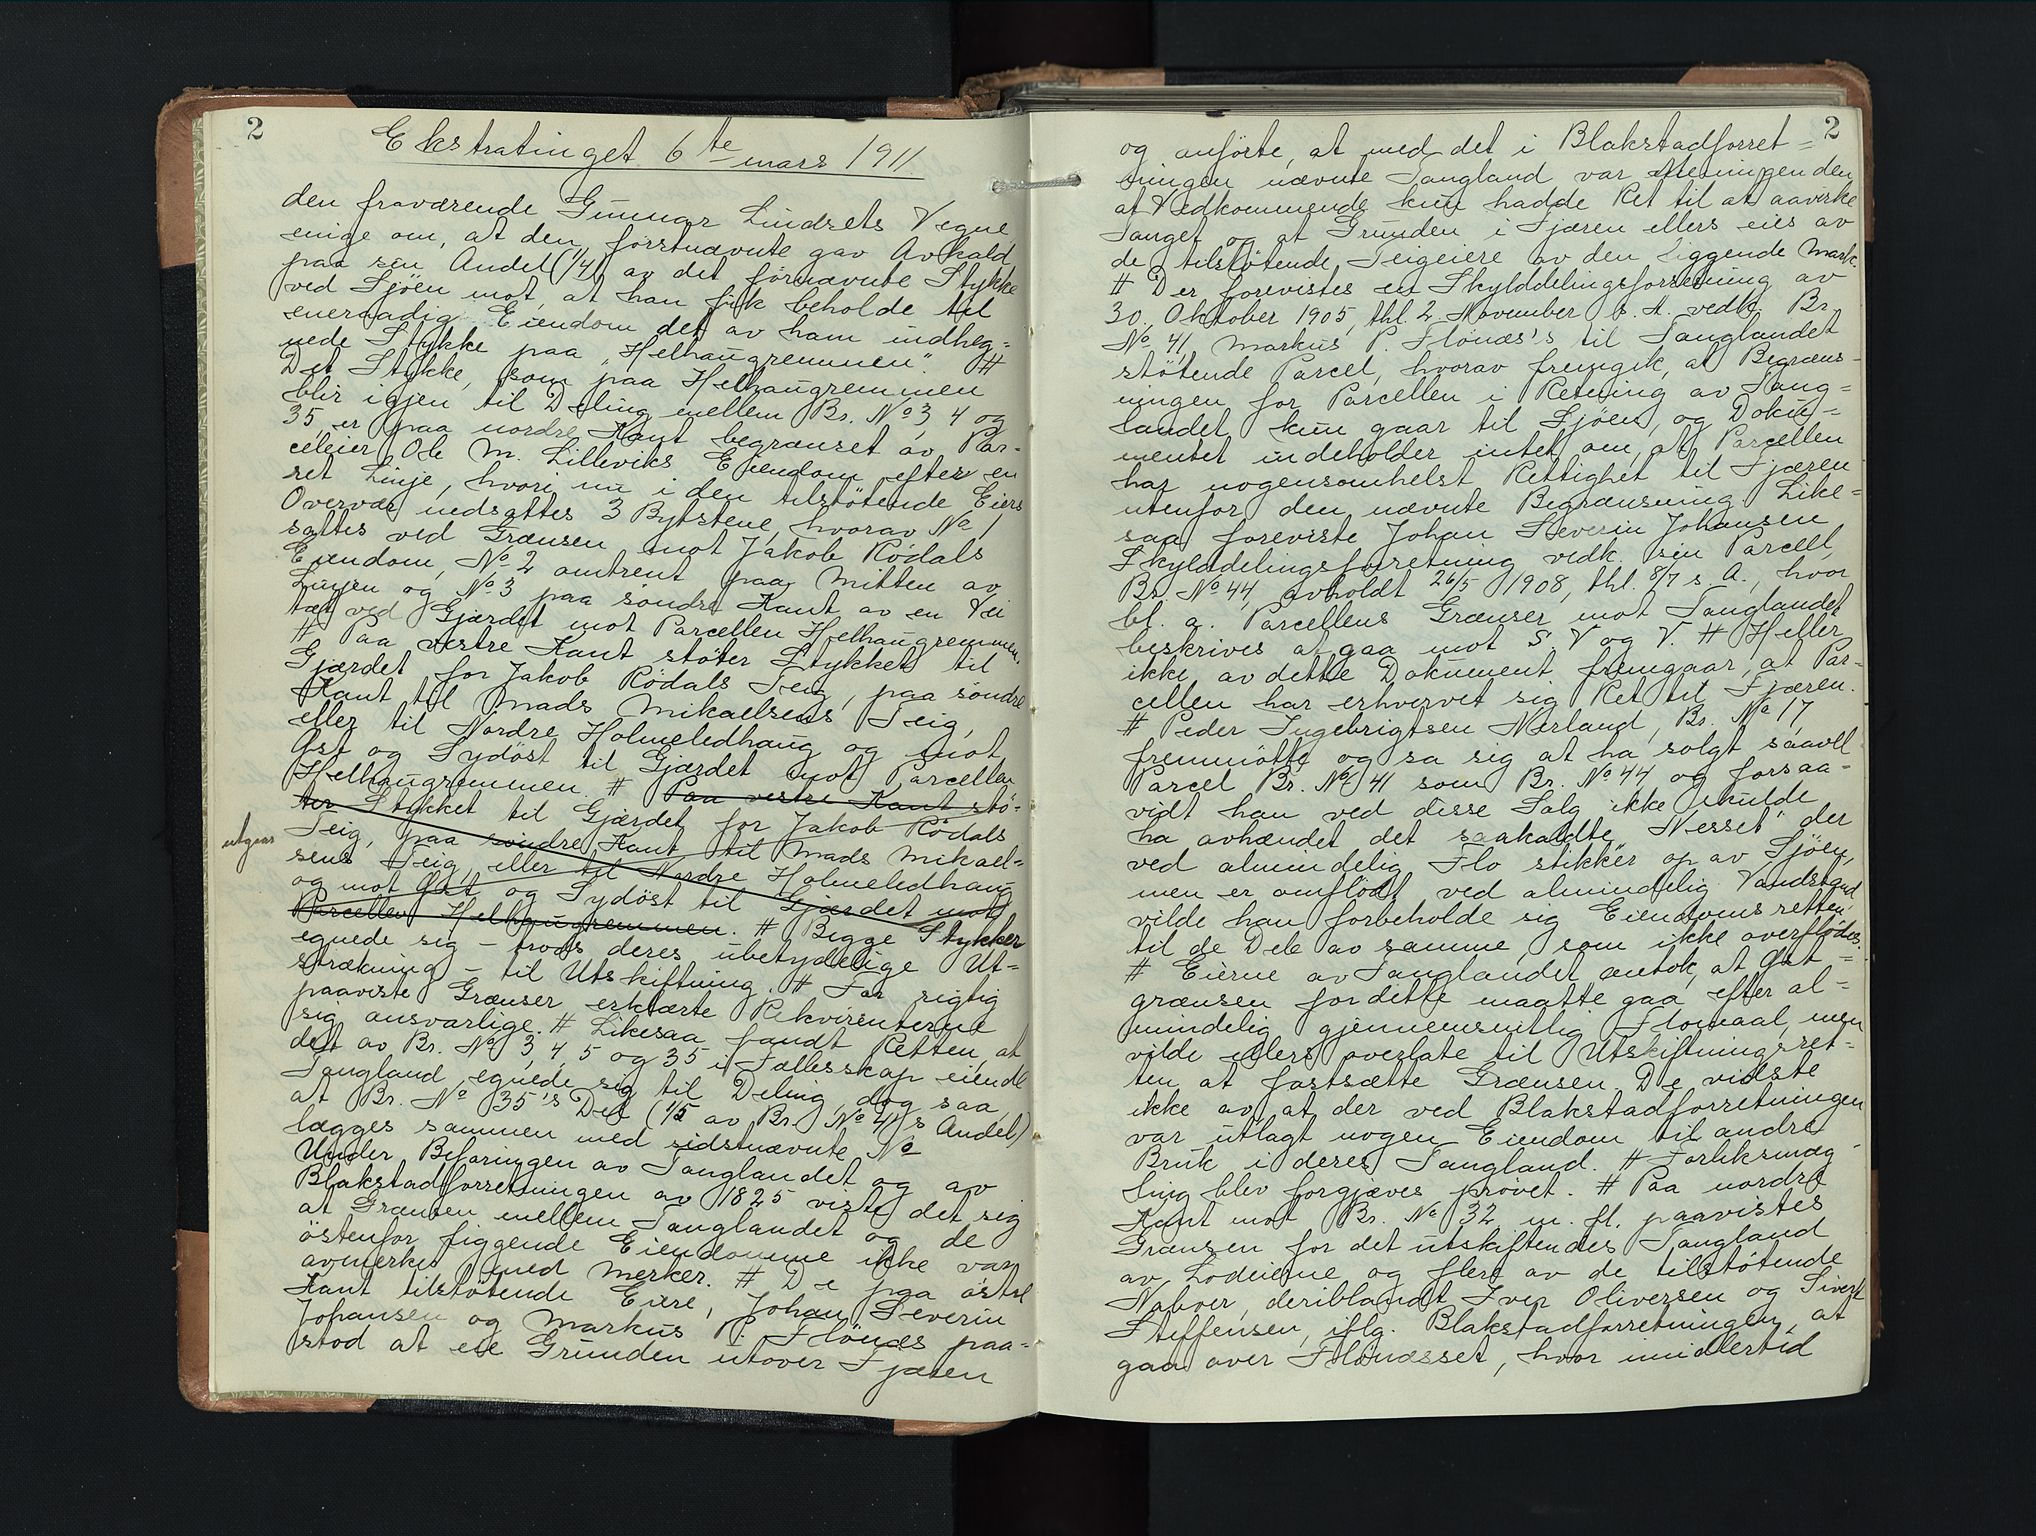 2
Ekstratinget 6te mars 1911.
den fraværende Gunnar Lindsets Vegne
enige om, at den førstnævnte gav Avkald
paa sin Andel (1/4) av det førnævnte Stykke
ved Sjøen mot, at han fik beholde til
eneraadig Eiendom det av ham indheg=
nede Stykke paa "Helhaugremmen". #
Det Stykke, som paa Helhaugremmen
blir igjen til Deling mellem Br. No 3, 4 og
35, er paa nordre Kant begrænset av Par-
celeier Ole M. Lilleviks Eiendom efter en
ret Linje, hvori nu i den tilstøtende Eiers
Overvær nedsattes 3 Bytstene, hvorav No 1
sattes ved Grænsen mot Jakob Rødals
Eiendom, No 2 omtrent paa Mitten av
Linjen og No 3 paa søndre Kant av en Vei
tæt ved Gjærdet mot Parcellen Helhaugremmen.
# Paa vestre Kant støter Stykket til
Gjærdet for Jakob Rødals Teig, paa søndre
Kant til Mads Mikaelsens Teig,
eller til Nordre Holmeledhaug og mot
Øst og Sydøst til Gjærdet mot Parcellen
Helhaugremmen. # Paa vestre Kant stø-
ter Stykket til Gjærdet for Jakob Rødals
utgaar
Teig, paa søndre Kant til Mads Mikael=
sens Teig, eller til Nordre Holmeledhaug
og mot Øst og Sydøst til Gjærdet mot
Parcellen Helhaugremmen. # Begge Stykker
egnede sig - trods deres ubetydelige Ut=
strækning - til Utskiftning. # For rigtig
paaviste Grænser erklærte Rekvirenterne
sig ansvarlige. # Likesaa fandt Retten, at
det av Br. No 3, 4, 5 og 35 i Fællesskap eiende
Tangland egnede sig til Deling, dog saa
at Br. No 35's Del (1/5 av Br. No 4's Andel)
lægges sammen med sidstnævnte No
Under Befaringen av Tanglandet og av
Blakstadforretningen av 1825 viste det sig
at Grænsen mellem Tanglandet og de
østenfor liggende Eiendomme ikke var
avmerket med Merker. # De paa østre
Kant tilstøtende Eiere, Johan Severin
Johansen og Markus P. Flønes paa-
stod at eie Grunden utover Fjæren
2
og anførte, at med det i Blakstadforret=
ningen nævnte Tangland var Meningen den
at Vedkommende kun hadde Ret til at aavirke
Tanget og at Grunden i Fjæren ellers eies av
de tilstøtende Teigeiere av den liggende Mark.
# Der forevistes en Skylddelingsforretning av
30. Oktober 1905, thl. 2. November s. A. vedk. Br.
No 41, Markus P. Flønæs's til Tanglandet
støtende Parcel, hvorav fremgik, at Begræns-
ningen for Parcellen i Retning av Tang=
landet kun gaar til Sjøen, og Doku=
mentet indeholder intet om, at Parcellen
har nogensomhelst Rettighet til Fjæren
utenfor den nævnte Begrænsning. Like=
saa foreviste Johan Severin Johansen
Skylddelingsforretning vedk. sin Parcel,
Br. No 44, avholdt 26/5 1908, thl. 8/7 s. A., hvor
bl. a. Parcellens Grænser mot Tanglandet
beskrives at gaa mot S. V og V. # Heller
ikke av dette Dokument fremgaar, at Par-
cellen har erhvervet sig Ret til Fjæren.
# Peder Ingebrigtsen Nerland, Br. No 17,
fremmøtte og sa sig at ha solgt saavel
Parcel Br. No 41 som Br. No 44, og forsaa-
vidt han ved disse Salg ikke skulde
ha avhændet det saakaldte "Nesset", der
ved almindelig Flo stikker op av Sjøen,
men er omflødt ved almindelig Vandstand
vilde han forbeholde sig Eiendomsretten
til de Dele av samme, som ikke overflødes.
# Eierne av Tanglandet antok, at Øst=
grænsen for dette maatte gaa efter al-
mindelig gjennemsnitlig Flomaal, men
vilde ellers overlate til Utskiftningsret-
ten at fastsætte Grænsen. De vidste
ikke av, at der ved Blakstadforretningen
var utlagt nogen Eiendom til andre
Bruk i deres Tangland. # Forliksmæg-
ling blev forgjæves prøvet. # Paa nordre
Kant mot Br. No 32 m. fl. paavistes
Grænsen for det utskiftendes Tangland
av Lodeierne og flere av de tilstøtende
Naboer, deriblandt Iver Oliversen og Sivert
Steffensen, iflg. Blakstadforretningen, at
gaa over Flønæsset, hvor imidlertid